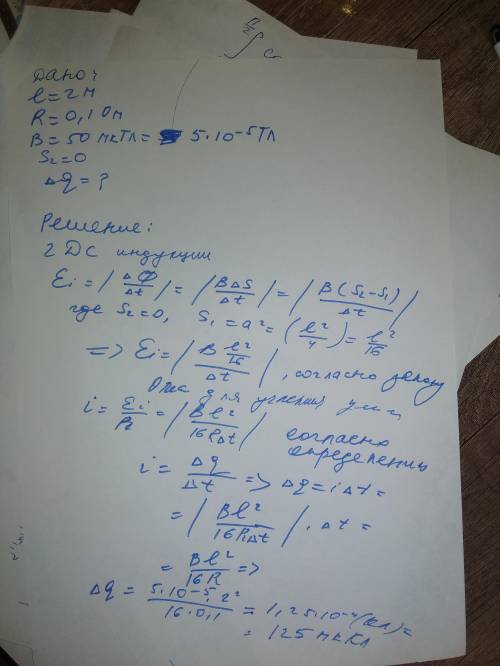 Дано:
l = 2 м
R = 0,1 Ом
B = 50 мкТл = 5·10⁻⁵ Тл
S₂ = 0
Δq = ?
Решение:
ЭДС индукции
Ei = |ΔФ/Δt| = |BΔS/Δt| = |B(S₂-S₁)/Δt|
где S₂=0, S₁ = a² = (l²/4) = l²/16
=> Ei = |B l²/16 / Δt|, согласно закону
Ома для
i = Ei/R = |Bl²/16RΔt| согласно
определению
i = Δq/Δt => Δq = iΔt =
= |Bl²/16RΔt|. Δt =
= Bl²/16R =>
Δq = 5·10⁻⁵·2²/16·0,1 = 1,25·10⁻⁴(Кл) =
= 125 мкКл